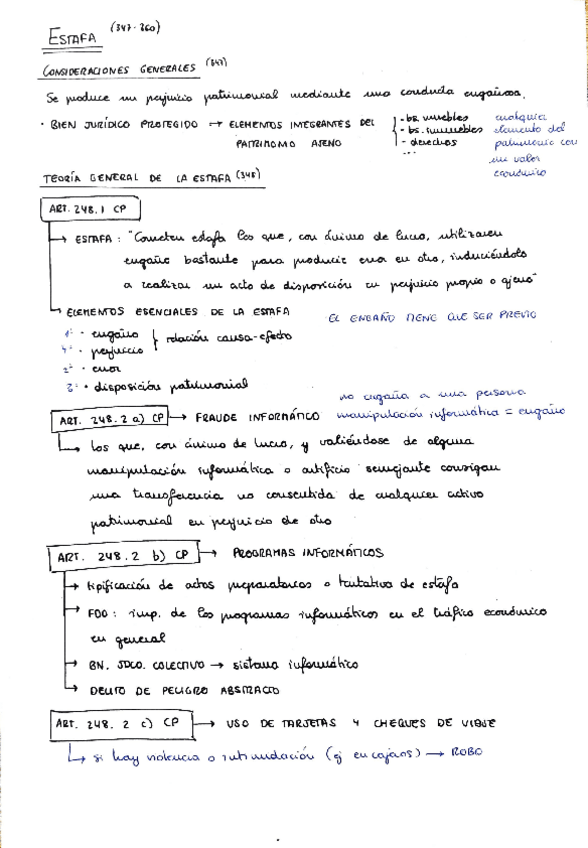 ESTAFA (347-360)
CONSIDERACIONES GENERALES (347)
Se produce un perjuicio patrimonial mediante una conducta engañosa.
· BIEN JURÍDICO PROTEGIDO → ELEMENTOS INTEGRANTES DEL PATRIMONIO AJENO
- bs. muebles
- bs. inmuebles
- derechos
...
cualquier
elemento del
patrimonio con
un valor
económico
TEORÍA GENERAL DE LA ESTAFA (348)
ART. 248.1 CP
→ ESTAFA: "Cometen estafa los que, con ánimo de lucro, utilizaren
engaño bastante para producir error en otro, induciéndolo
a realizar un acto de disposición en perjuicio propio o ajeno"
→ ELEMENTOS ESENCIALES DE LA ESTAFA
EL ENGAÑO TIENE QUE SER PREVIO
1º · engaño
4º · perjuicio
relación causa-efecto
2º · error
3º · disposición patrimonial
no engaña a una persona
ART. 248.2 a) CP → FRAUDE INFORMÁTICO manipulación informática = engaño
→ Los que, con ánimo de lucro, y valiéndose de alguna
manipulación informática o artificio semejante consigan
una transferencia no consentida de cualquier activo
patrimonial en perjuicio de otro
ART. 248.2 b) CP → PROGRAMAS INFORMÁTICOS
→ tipificación de actos preparatorios o tentativa de estafa
→ FDO: imp. de los programas informáticos en el tráfico económico
en general
→ BN. JDCO. COLECTIVO → sistema informático
→ DELITO DE PELIGRO ABSTRACTO
ART. 248.2 c) CP → USO DE TARJETAS Y CHEQUES DE VIAJE
→ si hay violencia o intimidación (ej en cajeros) → ROBO